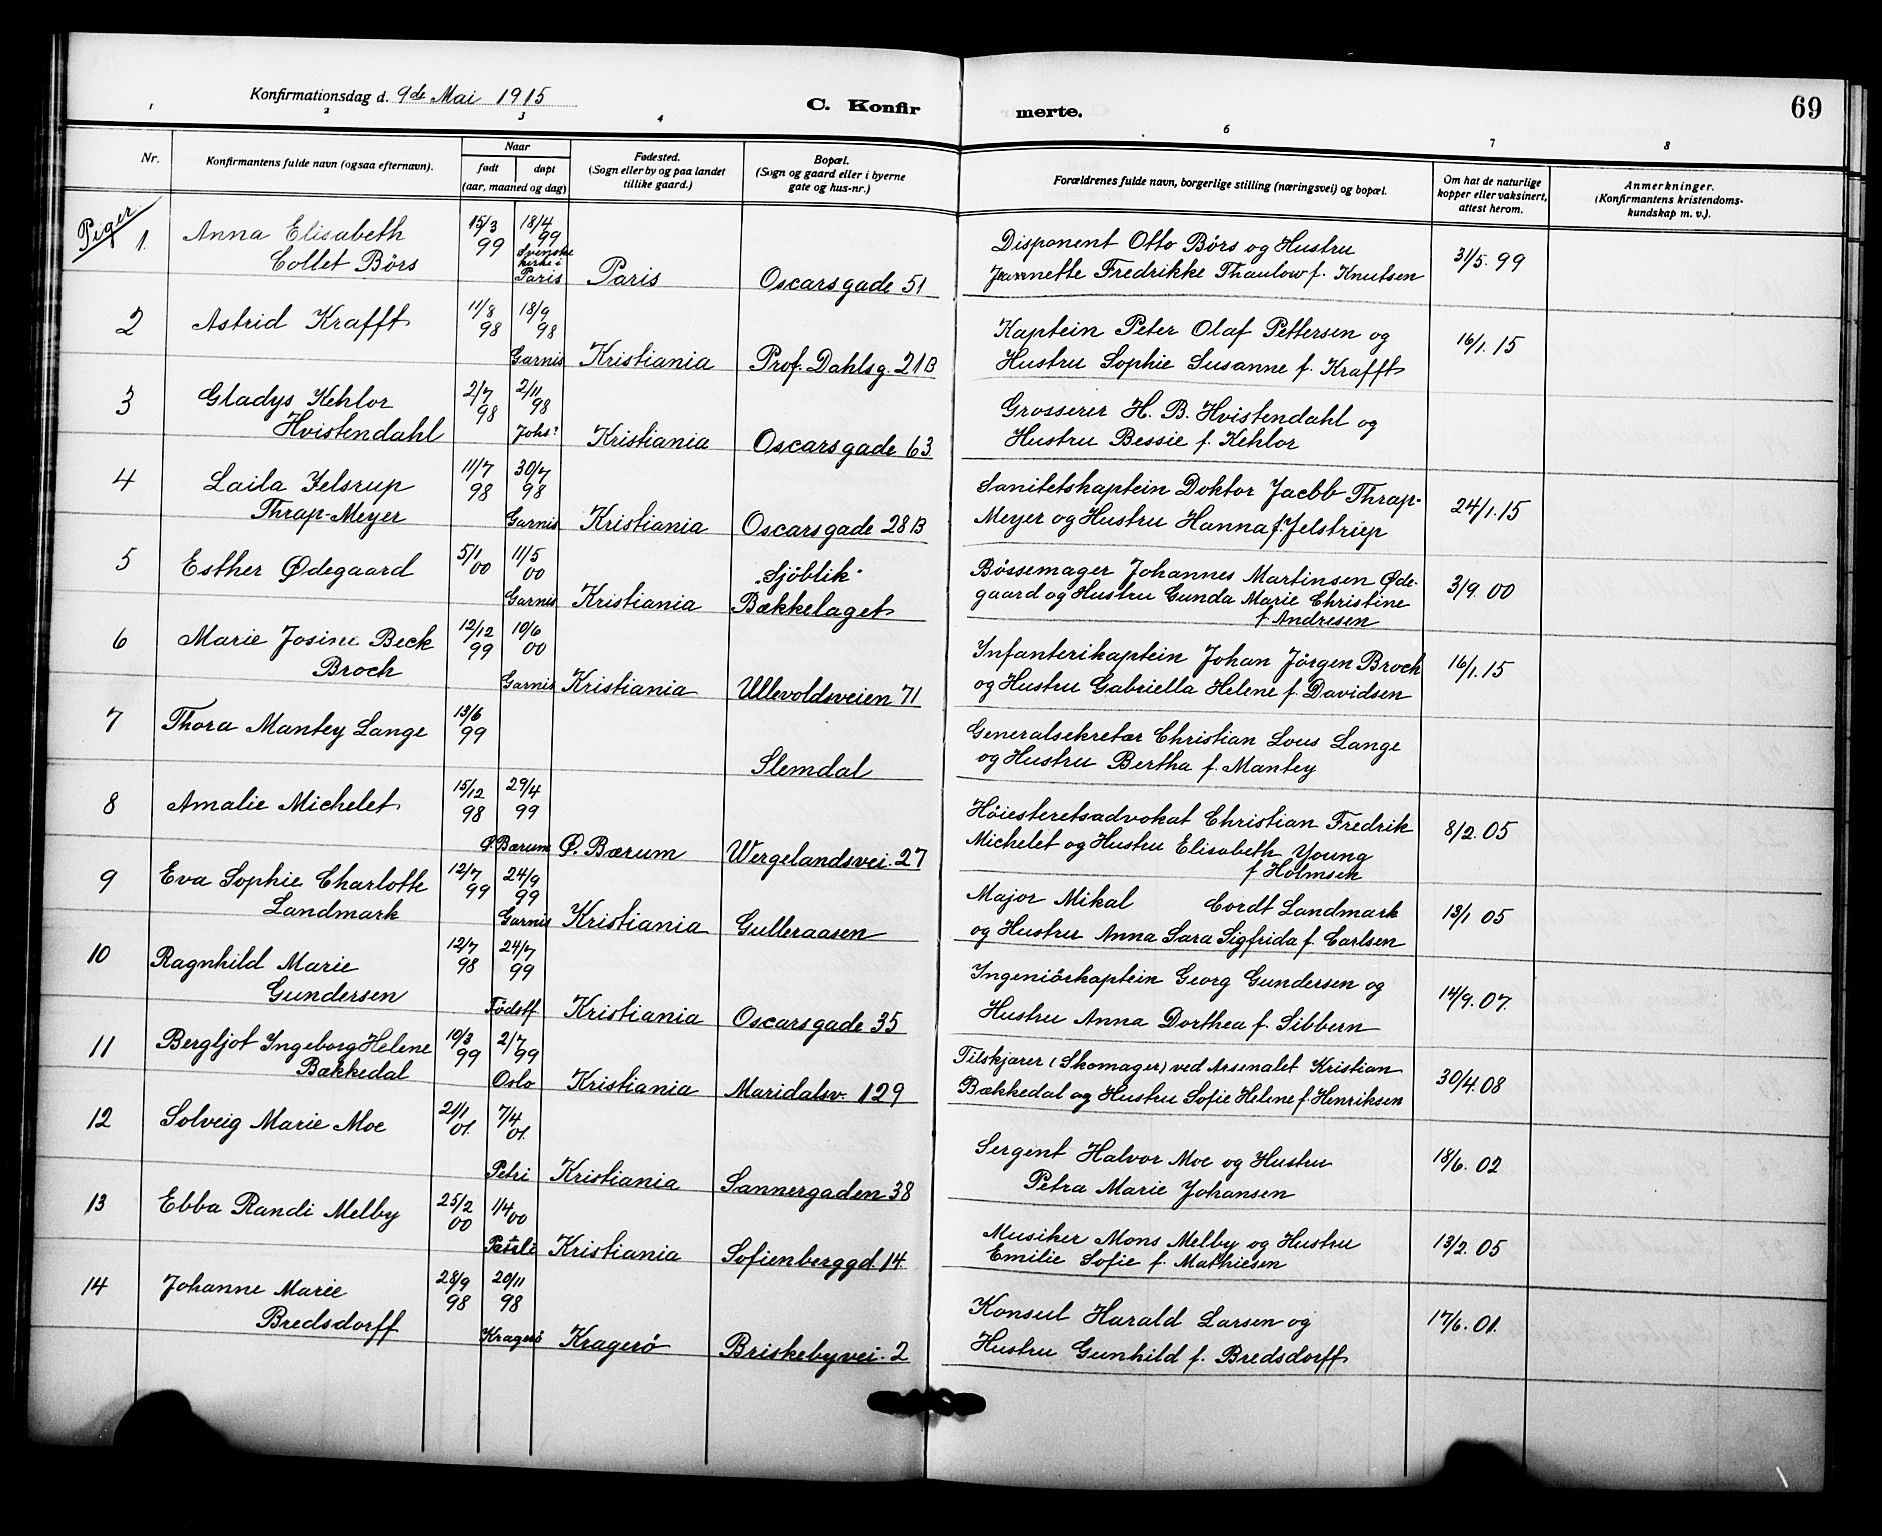 Konfirmationsdag d. 9de Mai 1915
C. Konfir
merte.
69
1
2
3
4
6
7
8
Nr.
Konfirmantens fulde navn (ogsaa efternavn).
Naar
født
døpt
(aar, maaned og dag)
Fødested.
(Sogn eller by og paa landet
tillike gaard.)
Bopæl.
(Sogn og gaard eller i byerne
gate og hus-nr.)
Forældrenes fulde navn, borgerlige stilling (næringsvei) og bopæl.
Om hat de naturlige
kopper eller vaksinert,
attest herom.
Anmerkninger.
(Konfirmantens kristendoms-
kundskap m. v.).
Piger.
1 Anna Elisabeth 15/3 99 18/4 99
Collet Börs Svenske kirke i Paris Paris Oscarsgade 51
Disponent Otto Börs og Hustru
Jeannette Fredrikke Thaulow f. Knutsen 31/5. 99
2 Astrid Krafft 11/8 98 18/9 98
Garnis Kristiania Prof. Dahlsg. 21B
Kaptein Peter Olaf Pettersen og
Hustru Sophie Susanne f. Krafft 16/1. 15
3 Gladys Kehlor 2/7 98 2/11 98
Hvistendahl Johs: Kristiania Oscarsgade 63
Grosserer H. B. Hvistendahl og
Hustru Bessie f. Kehlor
4 Laila Jelsrup 11/7 98 30/7 98
Thrap-Meyer Garnis Kristiania Oscarsgade 28B
Sanitetskaptein Doktor Jacob Thrap-
Meyer og Hustru Hanna f. Jelstrup 24/1. 15
5 Esther Ødegaard 5/1 00 11/5 00
„Sjöblik"
Garnis Kristiania Bækkelaget
Bössemager Johannes Martinsen Øde-
gaard og Hustru Gunda Marie Christine
f. Andresen 3/9. 00
6 Marie Josine Beck 12/12 99 10/6 00
Broch Garnis Kristiania Ullevoldsveien 71
Infanterikaptein Johan Jörgen Broch
og Hustru Gabriella Helene f. Davidsen 16/1. 15
7 Thora Mantey Lange 13/6 99
Slemdal
Generalsekretær Christian Lous Lange
og Hustru Bertha f. Mantey
8 Amalie Michelet 15/12 98 29/4 99
Ø. Bærum Ø. Bærum Wergelandsvei. 27
Höiesteretsadvokat Christian Fredrik
Michelet og Hustru Elisabeth Young
f. Holmsen 8/2. 05
9 Eva Sophie Charlotte 12/7 99 24/9 99
Landmark Garnis Kristiania Gulleraasen
Major Mikal Cordt Landmark
og Hustru Anna Sara Sigfrida f. Carlsen 13/1 05
10 Ragnhild Marie 12/7 98 24/7 99
Gundersen Födstf Kristiania Oscarsgade 35
Ingeniörkaptein Georg Gundersen og
Hustru Anna Dorthea f. Sibbern 14/9. 07.
11 Bergljot Ingeborg Helene 10/3 99 2/7 99
Bækkedal Oslo Kristiania Maridalsv. 129
Tilskjærer (Skomager) ved Arsenalet Kristian
Bækkedal og Hustru Sofie Helene f. Henriksen 30/4. 08
12 Solveig Marie Moe 21/1 01. 7/4 01.
Petri Kristiania Sannergaden 38
Sergent Halvor Moe og Hustru
Petra Marie Johansen 18/6. 02
13 Ebba Randi Melby 25/2 00 1/4 00
Kristiania Sofienberggd. 14
Musiker Mons Melby og Hustru
Emilie Sofie f. Mathiesen 13/2. 05
14 Johanne Marie 28/9 98 20/11 98
Bredsdorff Kragerö Kragerö Briskebyvei. 2
Konsul Harald Larsen og
Hustru Gunhild f. Bredsdorff 17/6. 01.